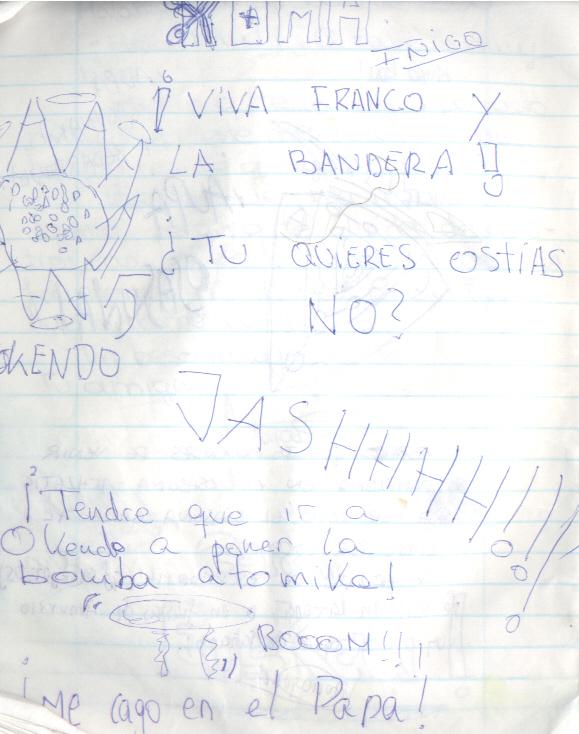 IÑIGO
¡VIVA FRANCO Y
LA BANDERA!!
¿TU QUIERES OSTIAS
NO?
OKENDO
JASHHHHH!!!
¡Tendre que ir a
Okendo a poner la
bomba atomika!
BOOOM!!!
¡ME cago en el Papa!